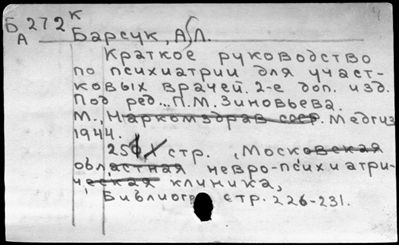 Б 272 к
А
Барсук, А.Л.
Краткое руководство
по психиатрии для участ-
ковых врачей. 2-е доп. изд.
Под ред... П.М. Зиновьева.
М., Наркомздрав ссср. Медгиз
1944.
256 стр. (Московская
областная невро-психиатри-
ческая клиника,
Библиогр стр. 226-231.